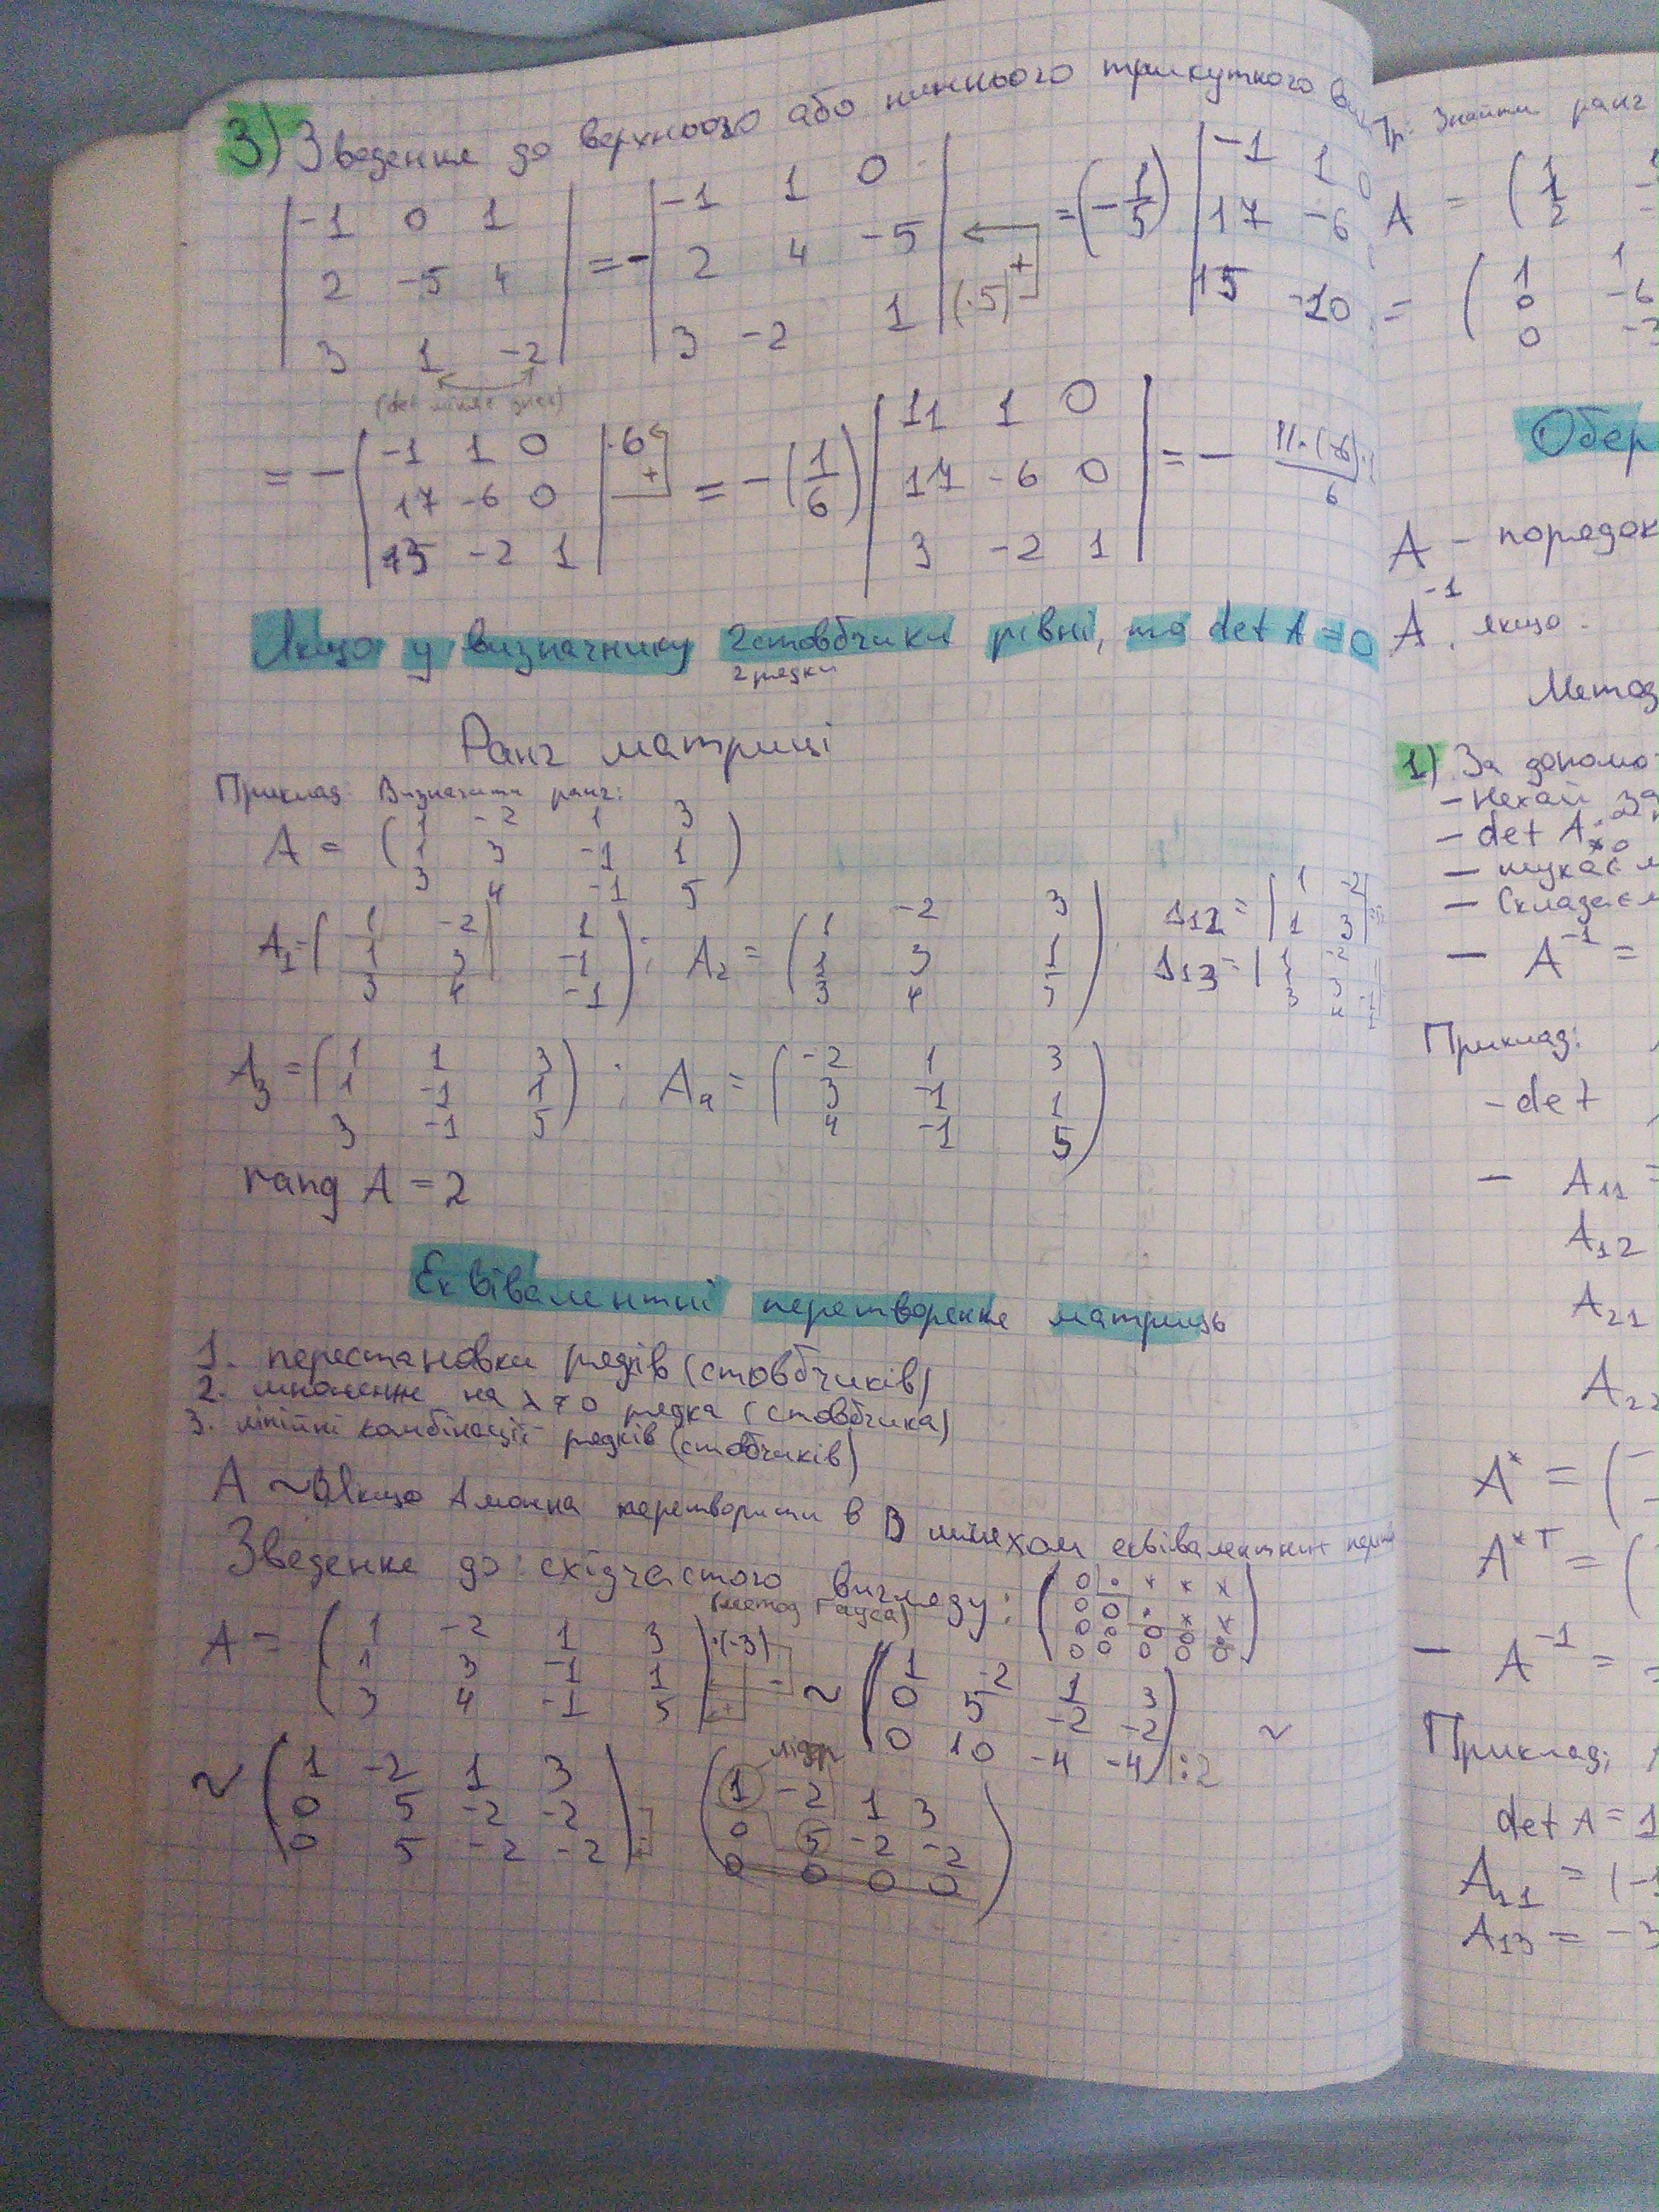 3) Зведення до верхнього або нижнього трикутного
| -1 0 1 | = - | -1 1 0 | = (-1/5) | -1 1 0
| 2 -5 4 | | 2 4 -5 | ← + | 17 -6
| 3 1 -2 | | 3 -2 1 | (·5) | 15 -10
= - | -1 1 0 | ·6 = -(1/6) | 11 1 0 | = - 11·(-6)·1 / 6
| 17 -6 0 | + | 17 -6 0 |
| 15 -2 1 | | 3 -2 1 |
Якщо у визначнику 2 стовбчики рівні, то det A = 0
2 рядки
Ранг матриці
Приклад Визначити ранг:
A = ( 1 -2 1 3
1 3 -1 1
3 4 -1 5 )
A1 = ( 1 -2 1 ; A2 = ( 1 -2 3 Δ12 = | 1 -2
1 3 -1 1 3 1 1 3 |
3 4 -1 ) 3 4 5 ) Δ13 = | 1 -2
A3 = ( 1 1 3 ; A4 = ( -2 1 3
1 -1 1 3 -1 1
3 -1 5 ) 4 -1 5 )
rang A = 2
Еквівалентні перетворення матриць
1. перестановки рядків (стовбчиків)
2. множення на λ≠0 рядка (стовбчика)
3. лінійні комбінації рядків (стовбчиків)
A ~ B якщо A можна перетворити в B шляхом еквівалентних
Зведення до східчастого вигляду:
(метод Гауса)
A = ( 1 -2 1 3 ·(-3) ~ ( 1 -2 1 3
1 3 -1 1 0 5 -2 -2 ~
3 4 -1 5 ) 0 10 -4 -4 ) |:2
лідер
~ ( 1 -2 1 3 ( 1 -2 1 3
0 5 -2 -2 0 5 -2 -2
0 5 -2 -2 ) 0 0 0 0 )
Пр: Знайти ранг
A = ( 1
1
2
= ( 1 1
0 -6
0 -3
Обер
A - порядок
A⁻¹, якщо
Метод
1) За допомо
- Нехай за
- det A ≠ 0
- шукаєм
- Складаєм
- A⁻¹ =
Приклад:
- det
- A11 =
A12
A21
A22
A* = (
A*T = (
- A⁻¹ =
Приклад;
det A = 1
A11 = (-1
A13 = -3